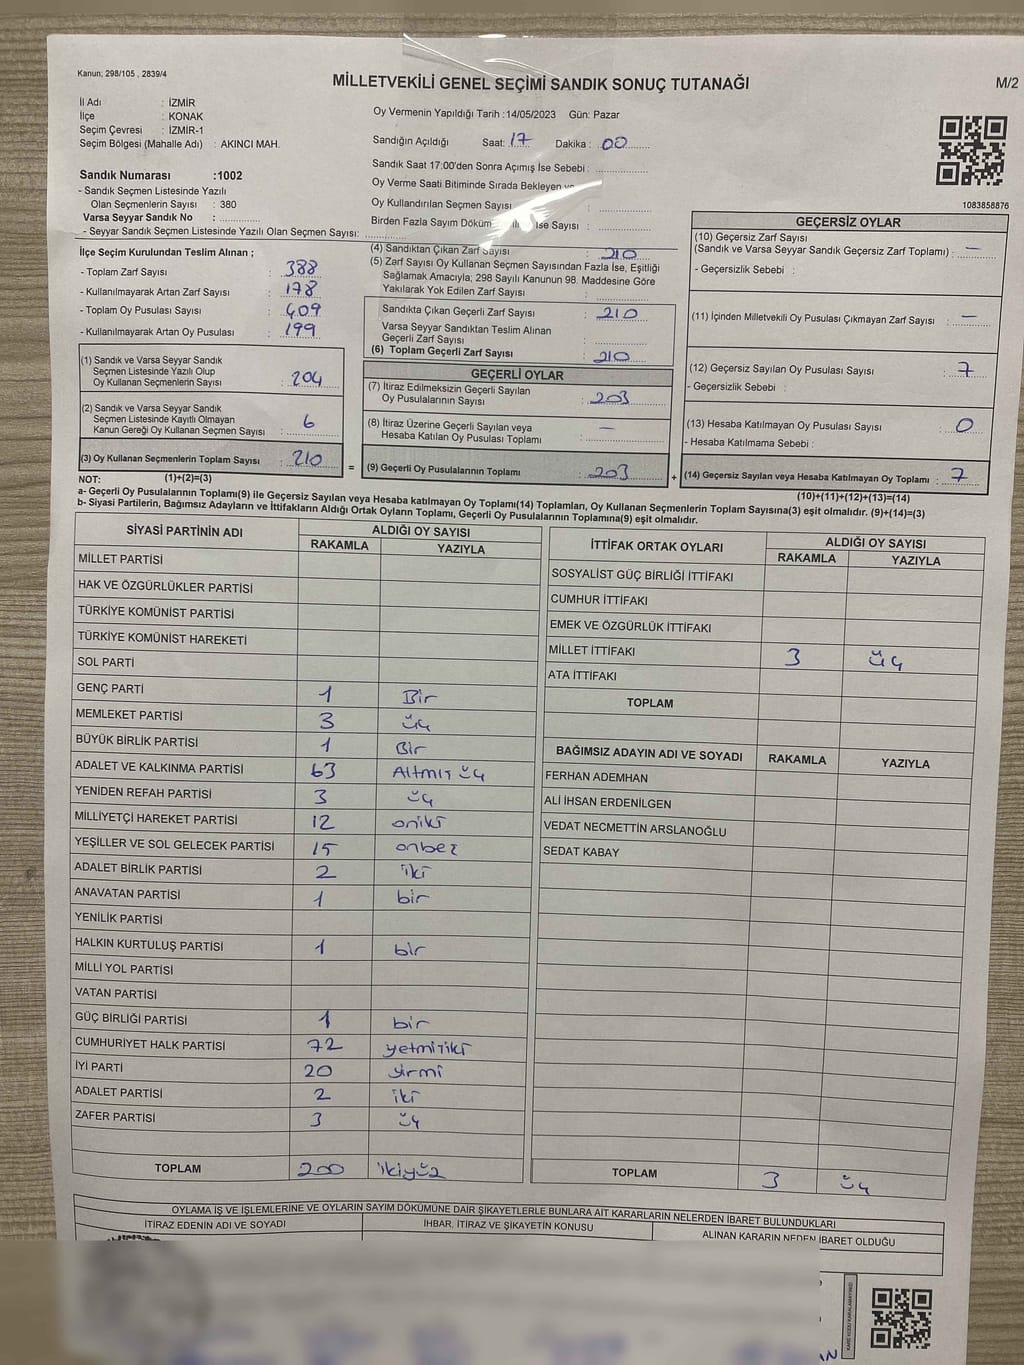 Kanun; 298/105 , 2839/4
MİLLETVEKİLİ GENEL SEÇİMİ SANDIK SONUÇ TUTANAĞI
M/2
İl Adı : İZMİR
İlçe : KONAK
Seçim Çevresi : İZMİR-1
Seçim Bölgesi (Mahalle Adı) : AKINCI MAH.
Sandık Numarası :1002
- Sandık Seçmen Listesinde Yazılı
Olan Seçmenlerin Sayısı : 380
Varsa Seyyar Sandık No :
- Seyyar Sandık Seçmen Listesinde Yazılı Olan Seçmen Sayısı:
Oy Vermenin Yapıldığı Tarih :14/05/2023 Gün: Pazar
Sandığın Açıldığı Saat: 17 Dakika : 00
Sandık Saat 17:00'den Sonra Açımış İse Sebebi :
Oy Verme Saati Bitiminde Sırada Bekleyen ve
Oy Kullandırılan Seçmen Sayısı :
Birden Fazla Sayım Döküm İse Sayısı :
1083858876
İlçe Seçim Kurulundan Teslim Alınan ;
- Toplam Zarf Sayısı : 388
- Kullanılmayarak Artan Zarf Sayısı : 178
- Toplam Oy Pusulası Sayısı : 409
- Kullanılmayarak Artan Oy Pusulası : 199
(1) Sandık ve Varsa Seyyar Sandık
Seçmen Listesinde Yazılı Olup
Oy Kullanan Seçmenlerin Sayısı : 204
(2) Sandık ve Varsa Seyyar Sandık
Seçmen Listesinde Kayıtlı Olmayan
Kanun Gereği Oy Kullanan Seçmen Sayısı : 6
(3) Oy Kullanan Seçmenlerin Toplam Sayısı : 210
(1)+(2)=(3)
(4) Sandıktan Çıkan Zarf Sayısı : 210
(5) Zarf Sayısı Oy Kullanan Seçmen Sayısından Fazla İse, Eşitliği
Sağlamak Amacıyla; 298 Sayılı Kanunun 98. Maddesine Göre
Yakılarak Yok Edilen Zarf Sayısı :
Sandıkta Çıkan Geçerli Zarf Sayısı : 210
Varsa Seyyar Sandıktan Teslim Alınan
Geçerli Zarf Sayısı :
(6) Toplam Geçerli Zarf Sayısı : 210
GEÇERLİ OYLAR
(7) İtiraz Edilmeksizin Geçerli Sayılan
Oy Pusulalarının Sayısı : 203
(8) İtiraz Üzerine Geçerli Sayılan veya
Hesaba Katılan Oy Pusulası Toplamı : —
= (9) Geçerli Oy Pusulalarının Toplamı : 203
GEÇERSİZ OYLAR
(10) Geçersiz Zarf Sayısı
(Sandık ve Varsa Seyyar Sandık Geçersiz Zarf Toplamı) : —
- Geçersizlik Sebebi :
(11) İçinden Milletvekili Oy Pusulası Çıkmayan Zarf Sayısı : —
(12) Geçersiz Sayılan Oy Pusulası Sayısı : 7
- Geçersizlik Sebebi :
(13) Hesaba Katılmayan Oy Pusulası Sayısı : 0
- Hesaba Katılmama Sebebi :
+ (14) Geçersiz Sayılan veya Hesaba Katılmayan Oy Toplamı : 7
(10)+(11)+(12)+(13)=(14)
NOT:
a- Geçerli Oy Pusulalarının Toplamı(9) ile Geçersiz Sayılan veya Hesaba katılmayan Oy Toplamı(14) Toplamları, Oy Kullanan Seçmenlerin Toplam Sayısına(3) eşit olmalıdır. (9)+(14)=(3)
b- Siyasi Partilerin, Bağımsız Adayların ve İttifakların Aldığı Ortak Oyların Toplamı, Geçerli Oy Pusulalarının Toplamına(9) eşit olmalıdır.
SİYASİ PARTİNİN ADI ALDIĞI OY SAYISI
RAKAMLA YAZIYLA
MİLLET PARTİSİ
HAK VE ÖZGÜRLÜKLER PARTİSİ
TÜRKİYE KOMÜNİST PARTİSİ
TÜRKİYE KOMÜNİST HAREKETİ
SOL PARTİ
GENÇ PARTİ 1 Bir
MEMLEKET PARTİSİ 3 üç
BÜYÜK BİRLİK PARTİSİ 1 Bir
ADALET VE KALKINMA PARTİSİ 63 Altmış üç
YENİDEN REFAH PARTİSİ 3 üç
MİLLİYETÇİ HAREKET PARTİSİ 12 oniki
YEŞİLLER VE SOL GELECEK PARTİSİ 15 onbeş
ADALET BİRLİK PARTİSİ 2 iki
ANAVATAN PARTİSİ 1 bir
YENİLİK PARTİSİ
HALKIN KURTULUŞ PARTİSİ 1 bir
MİLLİ YOL PARTİSİ
VATAN PARTİSİ
GÜÇ BİRLİĞİ PARTİSİ 1 bir
CUMHURİYET HALK PARTİSİ 72 yetmişiki
İYİ PARTİ 20 yirmi
ADALET PARTİSİ 2 iki
ZAFER PARTİSİ 3 üç
TOPLAM 200 ikiyüz
İTTİFAK ORTAK OYLARI ALDIĞI OY SAYISI
RAKAMLA YAZIYLA
SOSYALİST GÜÇ BİRLİĞİ İTTİFAKI
CUMHUR İTTİFAKI
EMEK VE ÖZGÜRLÜK İTTİFAKI
MİLLET İTTİFAKI 3 üç
ATA İTTİFAKI
TOPLAM
BAĞIMSIZ ADAYIN ADI VE SOYADI RAKAMLA YAZIYLA
FERHAN ADEMHAN
ALİ İHSAN ERDENİLGEN
VEDAT NECMETTİN ARSLANOĞLU
SEDAT KABAY
TOPLAM 3 üç
OYLAMA İŞ VE İŞLEMLERİNE VE OYLARIN SAYIM DÖKÜMÜNE DAİR ŞİKAYETLERLE BUNLARA AİT KARARLARIN NELERDEN İBARET BULUNDUKLARI
İTİRAZ EDENİN ADI VE SOYADI İHBAR, İTİRAZ VE ŞİKAYETİN KONUSU ALINAN KARARIN NEDEN İBARET OLDUĞU
KARE KODU KARALAMAYINIZ!